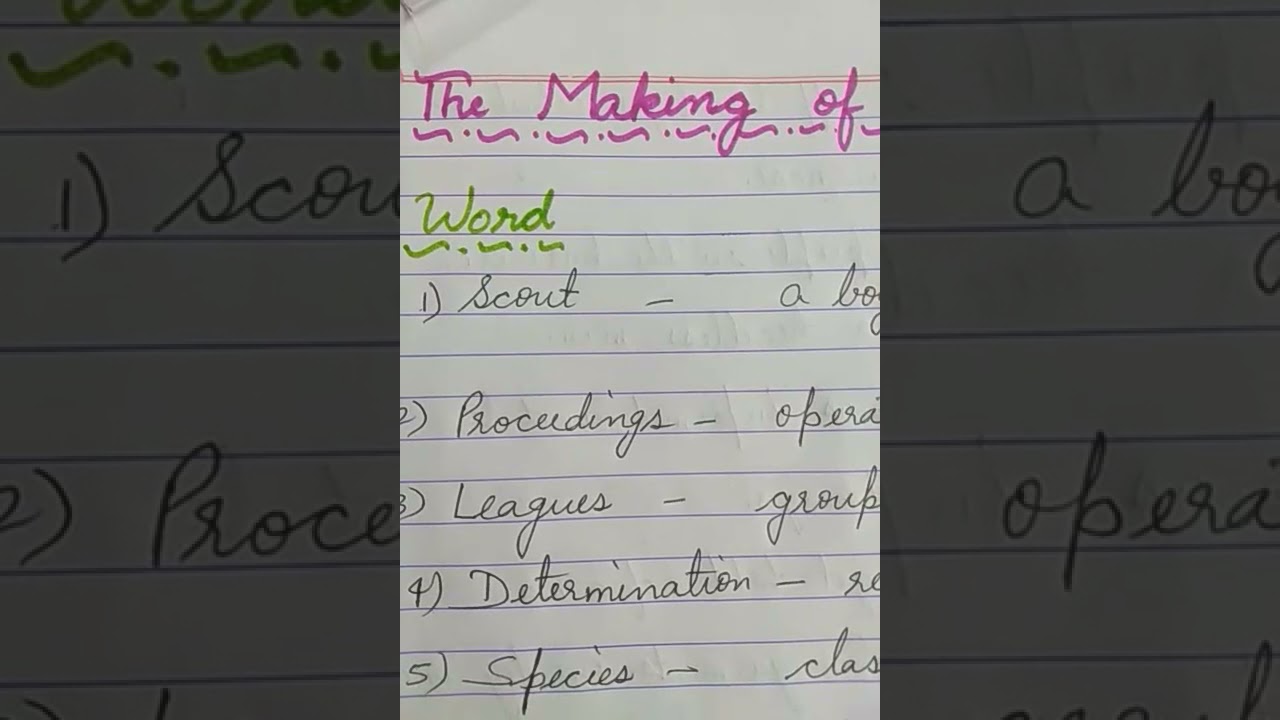 The Making of
Word
1) Scout - a bo
2) Proceedings - opera
3) Leagues - group
4) Determination - re
5) Species - clas